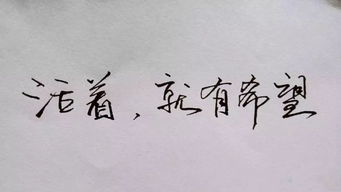 活着，就有希望